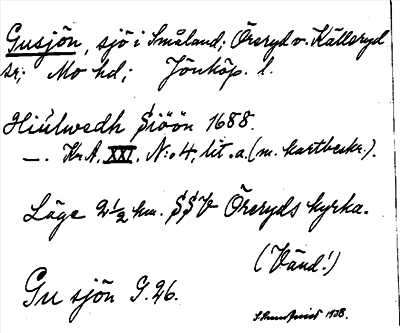 Gusjön, sjö i Småland; Öreryd o. Källeryd
sr; Mo hd; Jönköp. l.
Hiúlwedh Siöön 1688.
—. Kr.A. XXI. N:o 4, lit. a. (m. kartbeskr.).
Läge 2 1/2 km. SSV Öreryds kyrka.
(Vänd!)
Gusjön G. 26.
1938.